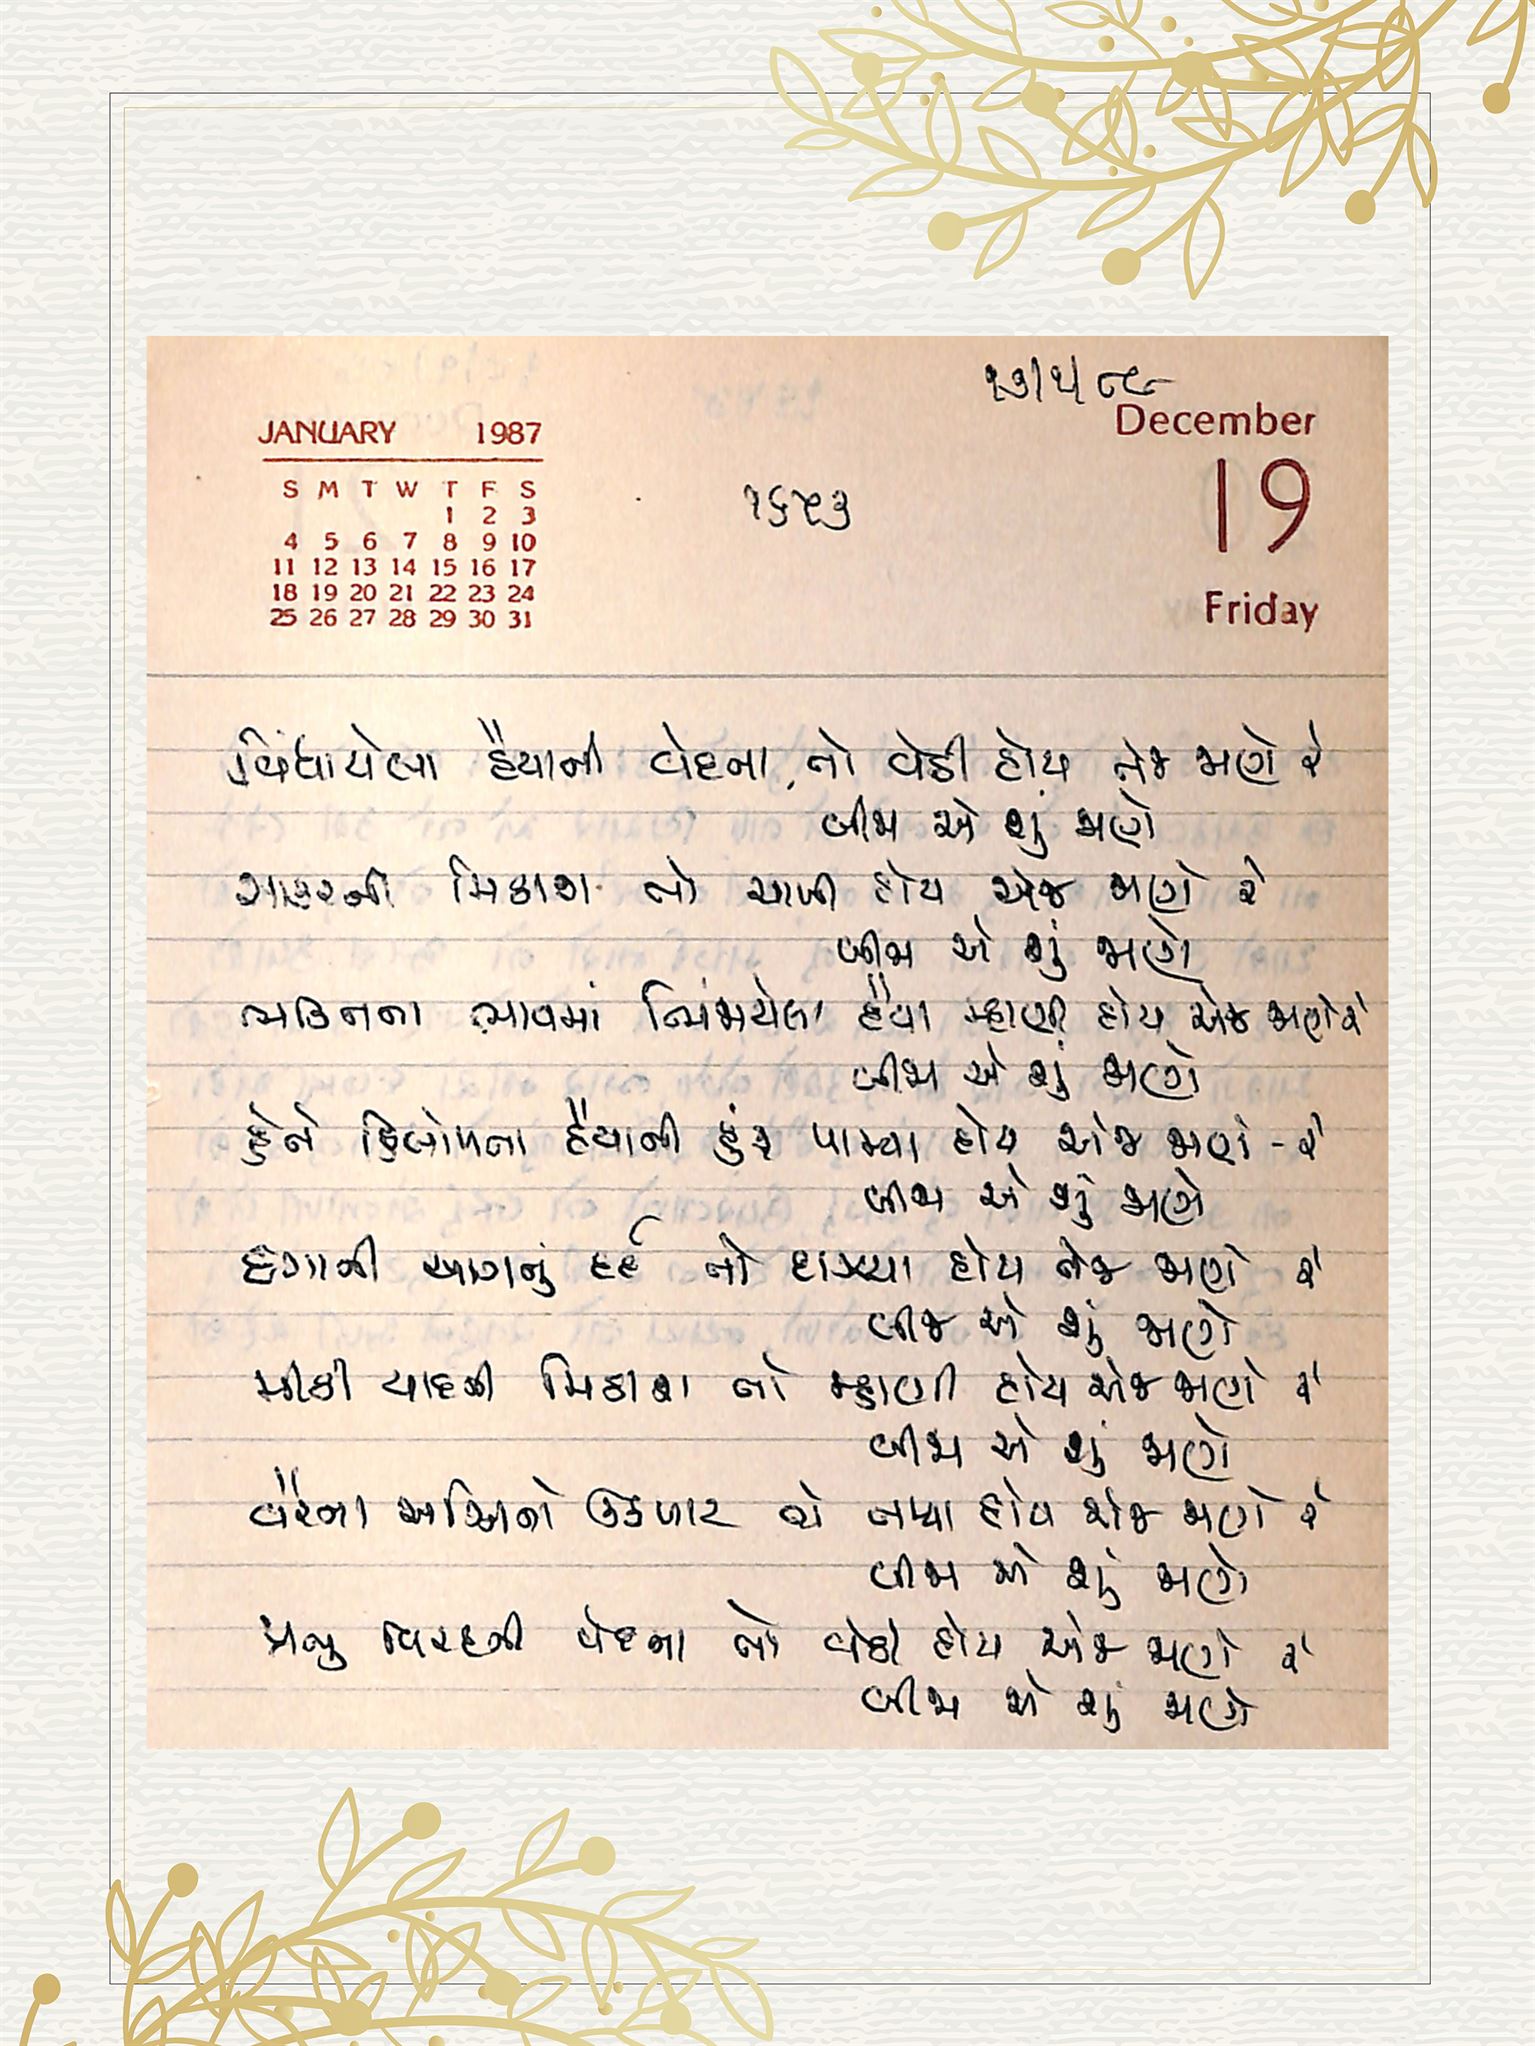 ૨૩/૫/૮૯
JANUARY 1987
December
S M T W T F S
1 2 3
4 5 6 7 8 9 10
11 12 13 14 15 16 17
18 19 20 21 22 23 24
25 26 27 28 29 30 31
૧૬૫૩
19
Friday
વિંધાયેલા હૈયાની વેદના, તો વેઠી હોય તેજ જાણે રે
બીજા એ શું જાણે
સાકરની મિઠાશ તો ચાખી હોય એજ જાણે રે
બીજા એ શું જાણે
ભક્તિના ભાવમાં ભિંજાયેલા હૈયા મ્હાણી હોય એજ જાણે રે
બીજા એ શું જાણે
હેતે હિલોળતા હૈયાની હુંફ પામ્યા હોય એજ જાણે - રે
બીજા એ શું જાણે
દગાની આગનું દર્દ તો દાઝ્યા હોય તેજ જાણે રે
બીજા એ શું જાણે
મીઠી યાદની મિઠાશ તો મ્હાણી હોય એજ જાણે રે
બીજા એ શું જાણે
વૈરના અગ્નિનો ઉકળાટ તપ્યા હોય એજ જાણે રે
બીજા એ શું જાણે
પ્રભુ વિરહની વેદના તો વેઠી હોય એજ જાણે રે
બીજા એ શું જાણે